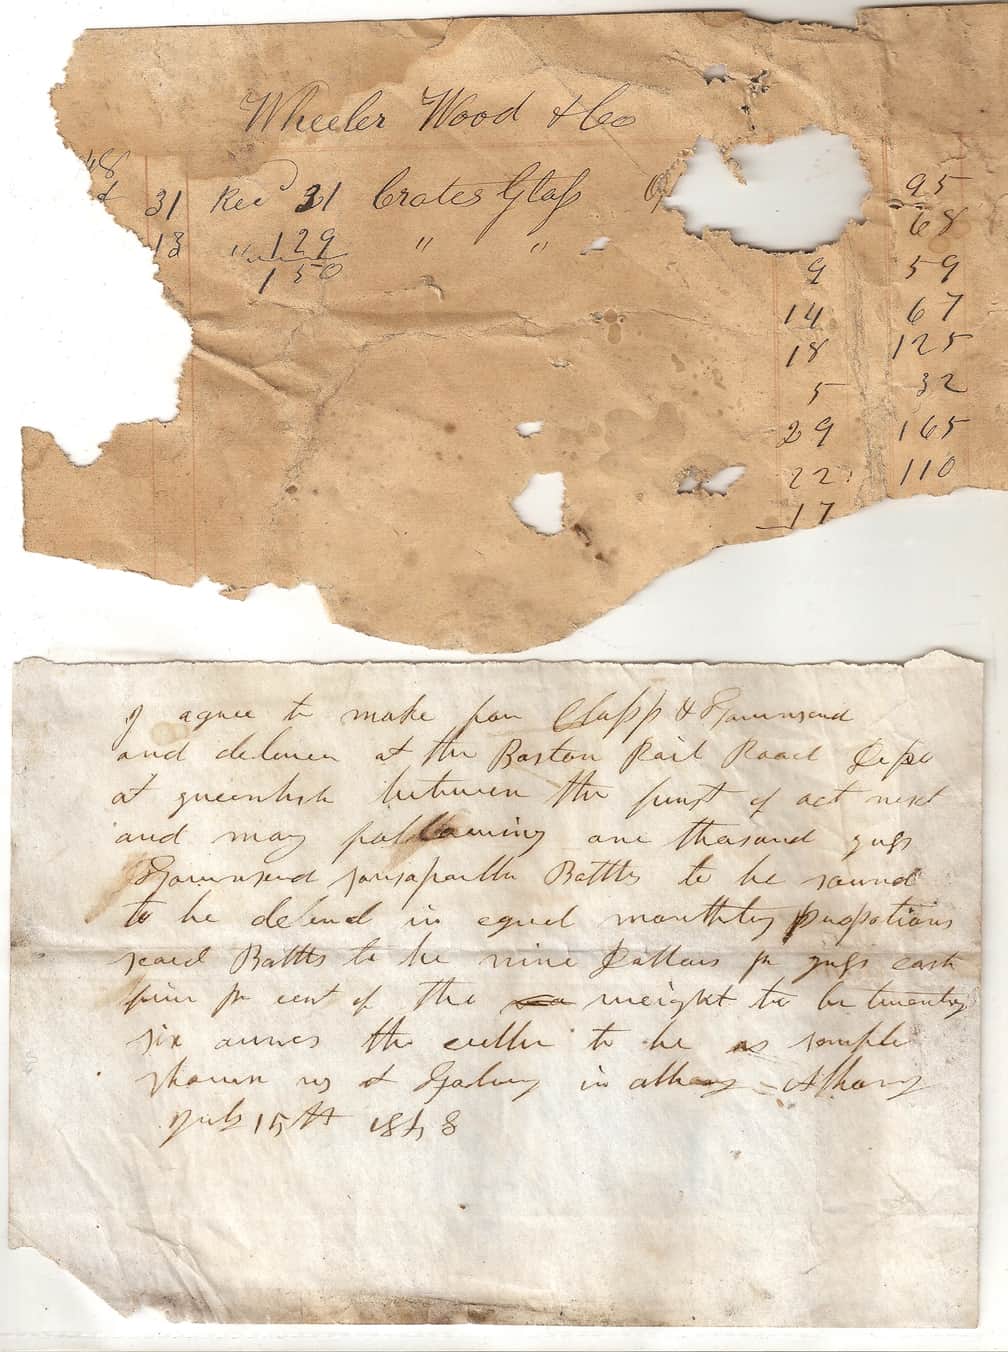 Wheeler Wood & Co
48
31 Rec^d 31 Crates Glass 95
68
13 " 129 " "
150
9 59
14 67
18 125
5 32
29 165
22 110
17
I agree to make for Clapp & Townsend
and deliver at the Boston Rail Road Depo
at greenbush between the furst of oct next
and may following one thousand
Townsend sarsaparilla Bottles to be sound
to be in equel monthly
said Bottles to be nine Dollers pr cash
pr cent of the weight to be twenty
six ounces the to be as sample
shown us at in albany Albany
July 15th 1848